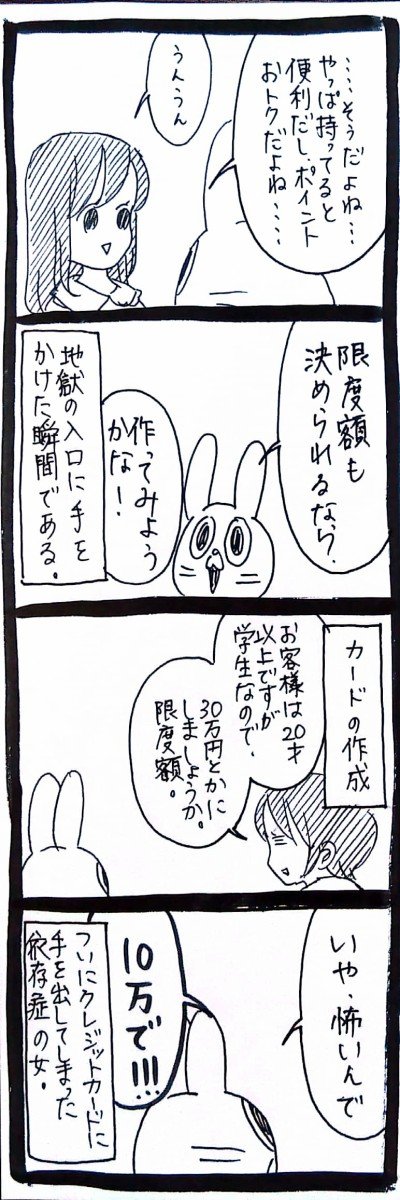 ‥‥そうだよね‥‥
やっぱ持ってると
便利だし、ポイント
おトクだよね‥‥
うんうん
限度額も
決められるなら、
作ってみよう
かな!
地獄の入口に手を
かけた瞬間である。
カードの作成
お客様は20才
以上ですが
学生なので、
30万円とかに
しましょうか。
限度額。
いや、怖いんで
10万で!!!
ついにクレジットカードに
手を出してしまった
依存症の女。